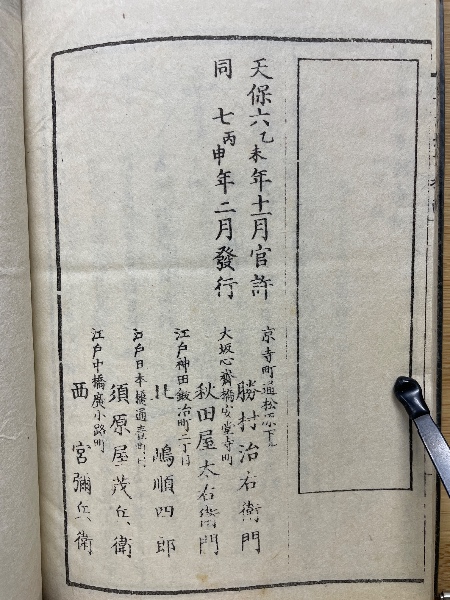 天保六乙未年十一月官許
同 七丙申年二月發行
京寺町通松原下ル
勝村治右衛門
大坂心齋橋安堂寺町
秋田屋太右衛門
江戸神田鍛冶町二丁目
北嶋順四郎
江戸日本橋通壹町目
須原屋茂兵衛
江戸中橋廣小路町
西宮彌兵衛